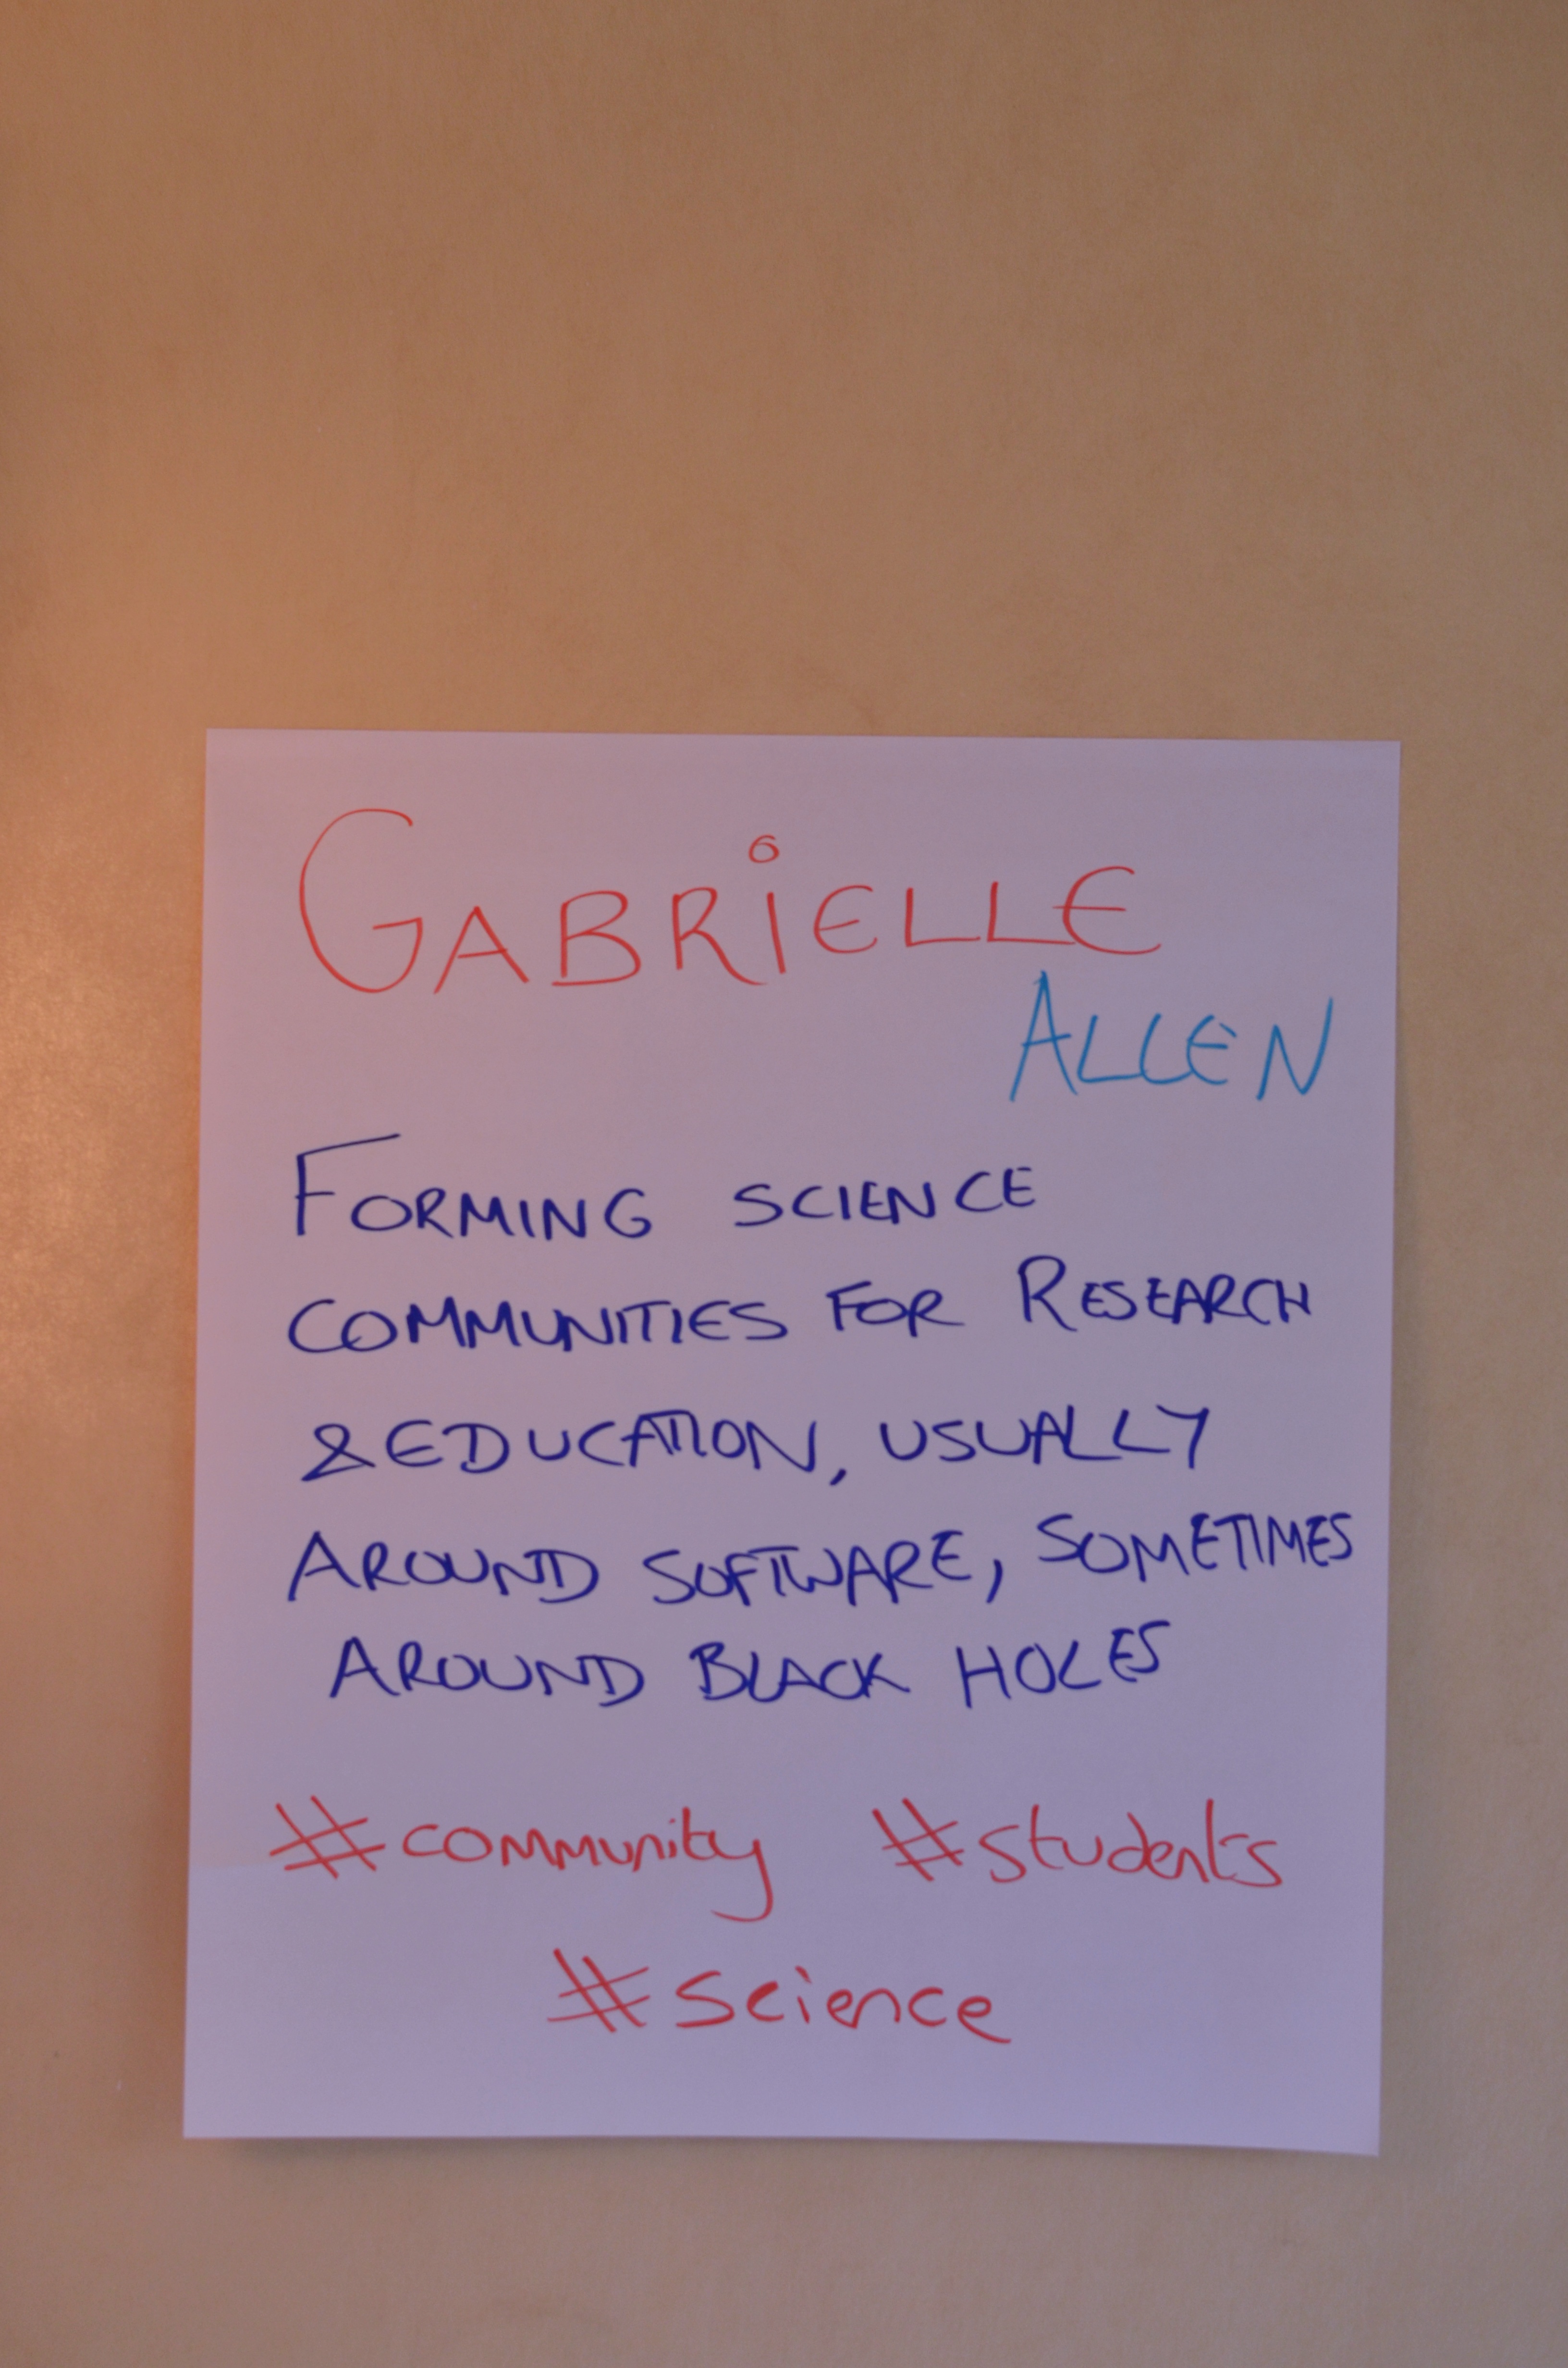 GABRiELLE
ALLEN
FORMING SCIENCE
COMMUNITIES FOR RESEARCH
& EDUCATION, USUALLY
AROUND SOFTWARE, SOMETIMES
AROUND BLACK HOLES
#community #students
#science